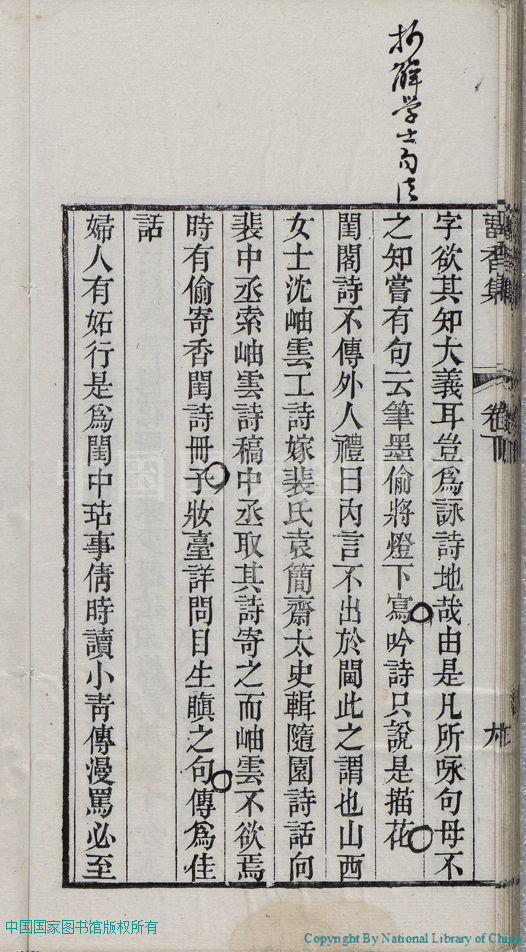 折解学士句法
字欲其知大義耳豈爲詠詩地哉由是凡所咏句母不
之知嘗有句云筆墨偷將燈下寫吟詩只說是描花
閨閣詩不傳外人禮曰內言不出於閫此之謂也山西
女士沈岫雲工詩嫁裴氏袁簡齋太史輯隨園詩話向
裴中丞索岫雲詩稿中丞取其詩寄之而岫雲不欲焉
時有偷寄香閨詩冊子妝臺詳問目生瞋之句傳爲佳
話
婦人有妬行是爲閨中玷事倩時讀小青傳漫罵必至
香集
卷下
中国国家图书馆版权所有
Copyright By National Library of China